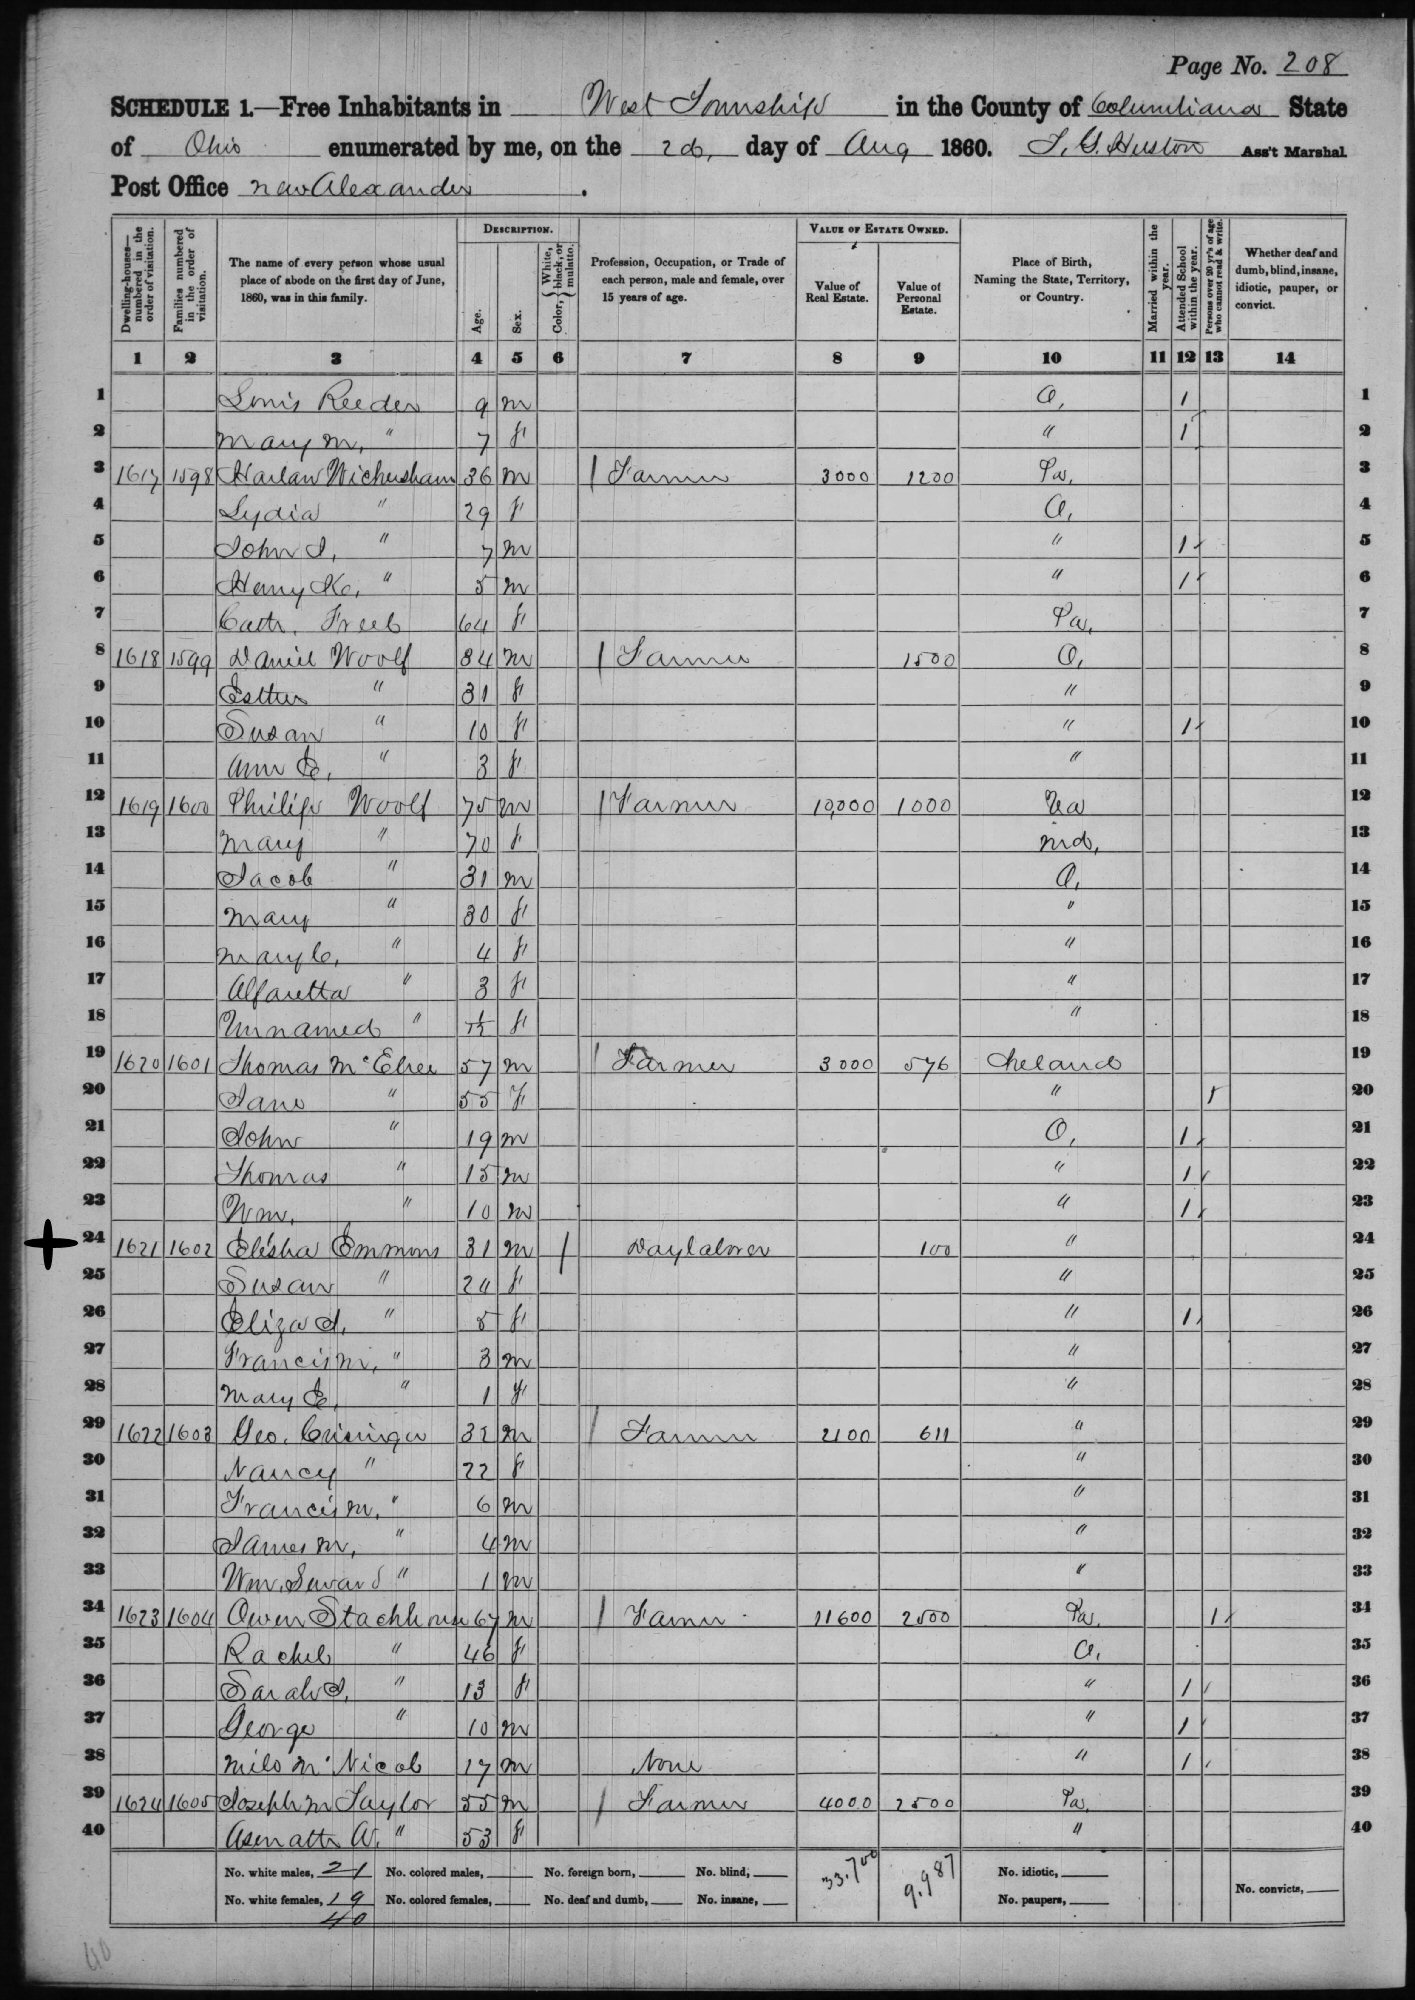 Page No. 208
SCHEDULE 1.—Free Inhabitants in West Township in the County of Columbiana State
of Ohio enumerated by me, on the 2d, day of Aug 1860. T. G. Huston Ass't Marshal
Post Office New Alexander .
Dwelling-houses—numbered in the order of visitation. Families numbered in the order of visitation. The name of every person whose usual place of abode on the first day of June, 1860, was in this family. DESCRIPTION. Age. Sex. Color, { White, black, or mulatto. Profession, Occupation, or Trade of each person, male and female, over 15 years of age. VALUE OF ESTATE OWNED. Value of Real Estate. Value of Personal Estate. Place of Birth, Naming the State, Territory, or Country. Married within the year. Attended School within the year. Persons over 20 yr's of age who cannot read & write. Whether deaf and dumb, blind, insane, idiotic, pauper, or convict.
1 2 3 4 5 6 7 8 9 10 11 12 13 14
1 Louis Reeder 9 m O, 1 1
2 Mary M, " 7 f " 1 2
3 1617 1598 Harlan Wickersham 36 m / Farmer 3000 1200 Pa, 3
4 Lydia " 29 f O, 4
5 John I, " 7 m " 1 5
6 Henry K, " 5 m " 1 6
7 Cath, 64 f Pa, 7
8 1618 1599 Daniel Woolf 34 m / Farmer 1500 O, 8
9 Esther " 31 f " 9
10 Susan " 10 f " 1 10
11 Ann E, " 3 f " 11
12 1619 1600 Philip Woolf 75 m / Farmer 10,000 1000 12
13 Mary " 70 f Md, 13
14 Jacob " 31 m O, 14
15 Mary " 30 f " 15
16 Mary C, " 4 f " 16
17 Alfaretta " 3 f " 17
18 Unnamed " 1/12 f " 18
19 1620 1601 Thomas McElree 57 m / Farmer 3000 576 Ireland 19
20 Jane " 55 f " 1 20
21 John " 19 m O, 1 21
22 Thomas " 15 m " 1 22
23 Wm, " 10 m " 1 23
24 1621 1602 Elisha Emmons 31 m / Daylaborer 100 " 24
25 Susan " 24 f " 25
26 Eliza J, " 5 f " 1 26
27 Francis M, " 3 m " 27
28 Mary E, " 1 f " 28
29 1622 1603 Geo, Crisinger 32 m / Farmer 2100 611 " 29
30 Nancy " 22 f " 30
31 Francis M, " 6 m " 31
32 James M, " 4 m " 32
33 Wm, Seward " 1 m " 33
34 1623 1604 Owen Stackhouse 67 m / Farmer 11600 2500 Pa, 1 34
35 Rachel " 46 f O, 35
36 Sarah J, " 13 f " 1 36
37 George " 10 m " 1 37
38 Milo McNicol 17 m None " 1 38
39 1624 1605 Joseph M Taylor 55 m / Farmer 4000 2500 Pa, 39
40 Asenath A, " 53 f " 40
No. white males, 21 No. colored males, No. foreign born, No. blind, 33.700 9.987 No. idiotic,
No. white females, 19 No. colored females, No. deaf and dumb, No. insane, No. paupers, No. convicts,
40
40